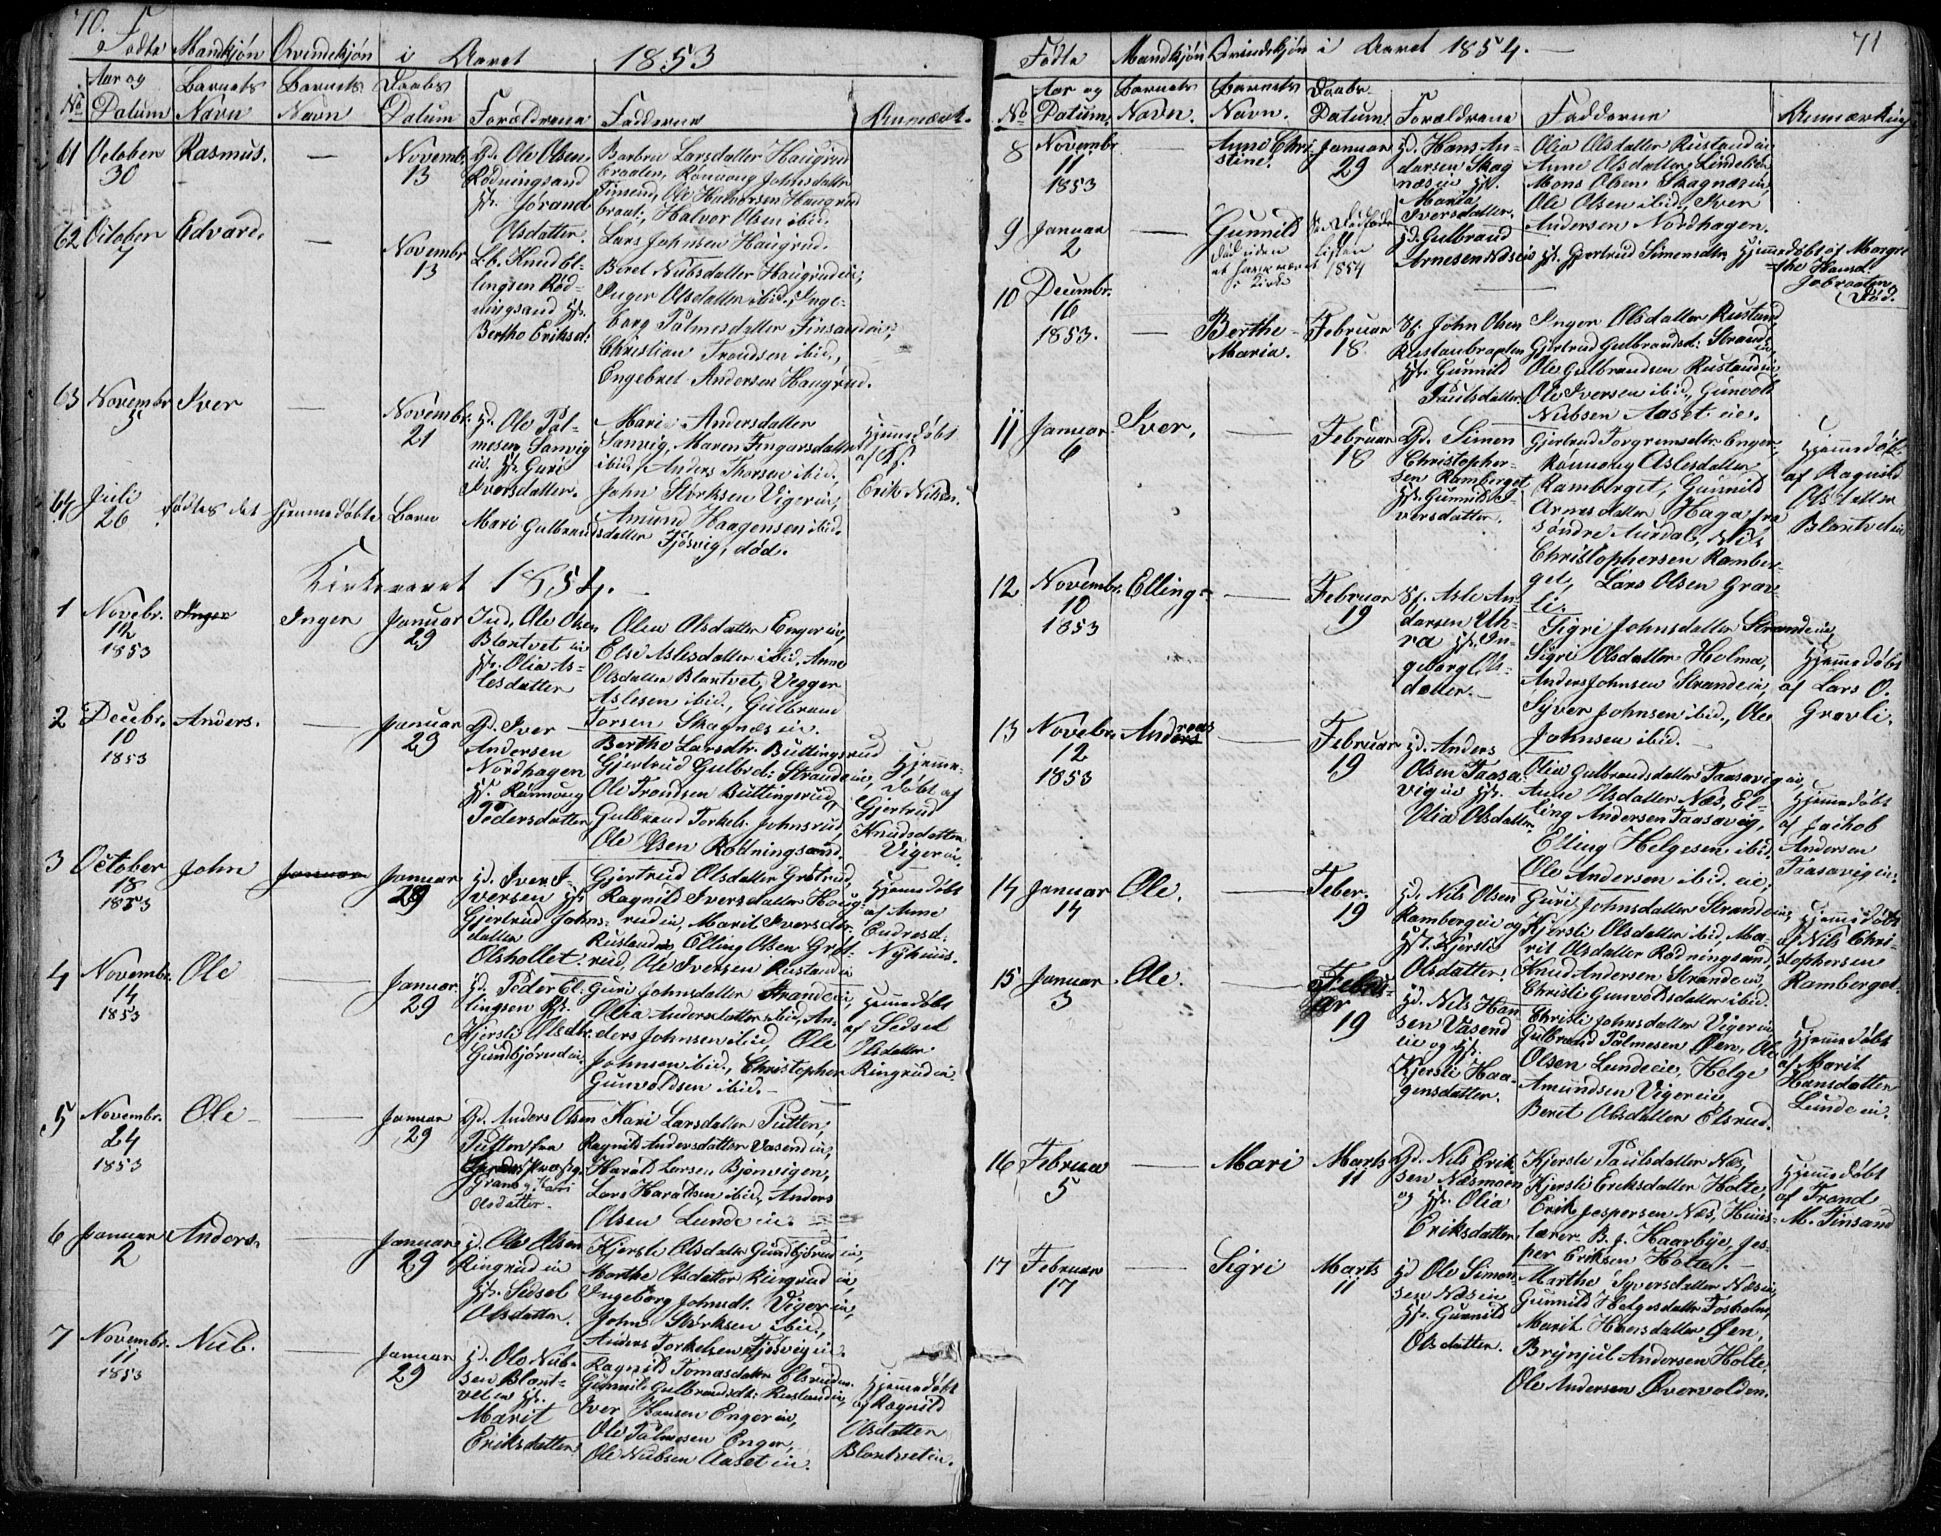 70.
Födte Mandkjön Qvindekjön i Aaret 1853
No
Aar og Datum
Barnets Navn
Barnets Navn
Daabs Datum
Forældrene
Fadderne
Anmærk.
61
October 30
Rasmus.
—
Novembr. 13
Gd. Ole Olsen
Rödningsand
Hst. Jorand
Olsdatter.
Barbru Larsdatter Haugrud
braaten, Rönnoug Johnsdatter
Finsand, Ole Halvorsen Haugrud
braat., Halvor Olsen ibid.
Lars Johnsen Haugrud.
62
October 7
Edvard.
—
Novembr 13
Knud El-
lingsen Röd-
ningsand Hst.
Berthe Eriksd.
Beret Nubsdatter Haugrudeie;
Inger Olsdatter ibid., Inge-
borg Palmesdatter Finsandeie,
Christian Trondsen ibid.,
Engebret Andersen Haugrud.
63
Novembr 5
Iver
—
Novembr. 21
Hd. Ole Pal-
mesen Sanvig
eie. Hst. Guri
Iversdatter.
Mari Andersdatter
Sanvig, Maren Fingarsdatter
ibid., Anders Thorsen ibid.
John Störksen Vigereie,
Amund Haagensen ibid.
Hjemmedöbt
af Ks.
Erik Nilsen.
64
Juli 26
födtes det hjemmedöbte Barn
Mari Gulbrandsdatter Fjösvig, död.
Kirkeaaret 1854.
1
Novebr. 1853
Inger
Inger
Januar 29
Ind. Ole Olsen
Blantvet eie
Hst. Olia As-
lesdatter
Olea Olsdatter Enger eie,
Else Aslesdatter ibid., Anne
Olsdatter Blantvet, Vegger
Aslesen ibid., Gulbrand
Torsen Skagnæs eie.
2
Decebr. 10 1853
Anders.
—
Januar 29
Gd. Iver
Andersen
Nordhagen
Hst. Rönnoug
Pedersdatter
Berthe Larsdtr. Buttingsrud
Gjertrud Gulbrd. Strandeeie,
Ole Trondsen Buttingsrud,
Gulbrand Torkels. Johnsrud,
Ole Olsen Rödningsand.
Hjemme-
döbt af
Gjertrud
Knudsdatter
Viger eie.
3
October 18 1853
John
Januar
Januar 29
Hd. Iver I-
versen Hst
Gjertrud Johns-
datter
Olshollet
Gjertrud Olsdatter Grötrud,
Ragnild Iversdatter Haug-
rudeie, Marit Iversdtr.
Rustandeie Elling Olsen Gröt-
rud, Ole Iversen Rustandeie
Hjemmedöbt
af Anne
Endresd.
Nyhuus.
4
Novembr. 14 1853
Ole
—
Januar 29
Hd. Peder El-
lingsen Hst.
Kjersti Olsdtr.
Gunbjörudeie
Guri Johnsdatter Strandeeie,
Olia Andersdatter ibid., An-
ders Johnsen ibid., Ole
Johnsen ibid., Christopher
Gunvoldsen ibid.
Hjemmedöbt
af Sidsel
Olsdatter
Ringrudeie.
5
Novembr. 24 1853
Ole
—
Januar 29
Gd. Anders Olsen
Tutten fra
Gran og Kari
Olsdatter.
Kari Larsdatter Tutten,
Ragnild Andersdatter Vasendeie,
Harald Larsen Björnvigen,
Lars Haraldsen ibid., Anders
Olsen Lunde eie.
6
Januar 2
Anders.
—
Januar 29
Hd. Ole Olsen
Ringrud eie
Hst. Sidsel
Olsdatter.
Kjersti Olsdatter Gunbjörudeie,
Marthe Olsdatter Ringrud eie,
Ingeborg Johnsdt. Viger eie,
John Störksen ibid.,
Anders Torkelsen Fjösvig eie.
7
Novembr. 11 1853
Nub.
—
Januar 29
Hd. Ole Nub-
sen Blant-
vet eie Hst.
Marit
Eriksdatter
Ragnild Tomasdatter Elsrudeie
Gunnild Gulbrandsdt. Rustandeie,
Iver Hansen Enger eie,
Ole Palmesen Enger,
Ole Nubsen Aaset eie.
Hjemmedöbt
af Ragnild
Olsdatter
Blantvet eie.
71
Födte Mandkjön Qvindekjön i Aaret 1854.
No
Aar og Datum.
Barnets Navn.
Barnets Navn.
Daabs- Datum.
Forældrene
Fadderne
Anmærkning
8
Novembr. 11 1853
—
Anne Chri-
stine.
Januar 29
Hd. Hans An-
dersen Skag
næs eie Hst.
Maria
Iversdatter.
Olia Olsdatter Rustandeie
Anne Olsdatter Lindelien
Mons Olsen Skagnæseie,
Ole Olsen ibid., Iver
Andersen Nordhagen.
9
Januar 2
Gunnild
död uden
at have været
i Kirke
Se Dödfödte
Listen
1854
Hd. Gulbrand
Arnesen Næseie Hst. Gjertrud Simensdtr.
Hjemmedöbt af Margre-
the Hansd.
Jobraaten
(Död.
10
Decembr. 16 1853.
—
Berthe
Maria.
Februar 18
John Olsen
Rustanbraaten
Hst. Gunnild
Paulsdatter.
Inger Olsdatter Rustand,
Gjertrud Gulbrandsd. Strandeeie
Ole Gulbrandsen Rustandeie
Ole Iversen ibid., Gunvold
Nubsen Aaset eie.
11
Januar 6
Iver.
—
Februar 18
Gd. Simen
Christopher-
sen Ramberget
Hst. Gunnild I-
versdatter.
Gjertrud Torgrimsdtr. Enger,
Rönnoug Aslesdatter
Ramberget, Gunnild
Arnesdatter Haga fra
söndre Aurdal, Nils
Christophersen Ramber-
get, Lars Olsen Grav-
li.
Hjemmedöbt
af Ragnild
Olsdatter
Blantvet eie
12
Novembr. 10 1853
Elling
—
Februar 19
Asle An-
dersen Uh-
ra Hst. In-
geborg Ols-
datter.
Sigri Johnsdatter Strandeeie,
Sigri Olsdatter Holma,
Anders Johnsen Strandeeie,
Syver Johnsen ibid., Ole
Johnsen ibid.
Hjemmedöbt
af Lars O.
Gravli.
13
Novebr. 12 1853
Andreas
—
Februar 19
Hd. Anders
Olsen Taasa
vigeie Hst.
Olia Olsdatter.
Olia Gulbrandsdatter Taasavig eie,
Anne Olsdatter Næs, El-
ling Andersen Taasavig,
Elling Helgesen ibid.,
Ole Andersen ibid. eie.
Hjemmedöbt
af Jachob
Andersen
Taasavig eie.
14
Januar 14
Ole.
—
Feber. 19
Hd. Nils Olsen
Rambergeie og
Hst. Kjersti
Olsdatter.
Guri Johnsdatter Strandeeie,
Kjersti Olsdatter ibid., Ma-
rit Olsdatter Rödningsand,
Knud Andersen Strandeeie,
Christi Gunvoldsdatter ibid.
Hjemmedöbt
af Nils Chri-
stophersen
Ramberget.
15
Januar 3
Ole.
—
Febru-
ar 19
Hd. Nils Han-
sen Vasend
eie og Hst.
Kjersti Haa-
gensdatter.
Christi Johnsdatter Vigereie,
Gulbrand Palmesen Öen, Ole
Olsen Lundeeie, Helge
Amundsen Vigereie,
Beret Olsdatter Elsrud.
Hjemmedöbt
af Marit
Hansdatter
Lunde eie.
16
Februar 5
—
Mari
Marts 11
Gd. Nils Erik-
sen Næsmoen
og Hst. Olia
Eriksdatter.
Kjersti Paulsdatter Næs,
Kjersti Eriksdatter Holte,
Erik Jespersen Næs, Huus-
lærer B. J. Haarbye, Jes-
per Eriksen Holte.
Hjemmedöbt
af Trond
M. Finsand
17
Februar 17
—
Sigri
Marts 11
Hd Ole Simen-
sen Næseie
Hst. Gunnild
Olsdatter.
Marthe Syversdatter Næseie,
Gunnild Helgesdatter Fosholm,
Marit Hansdatter Öen,
Brynjul Andersen Holte,
Ole Andersen Övervolden.